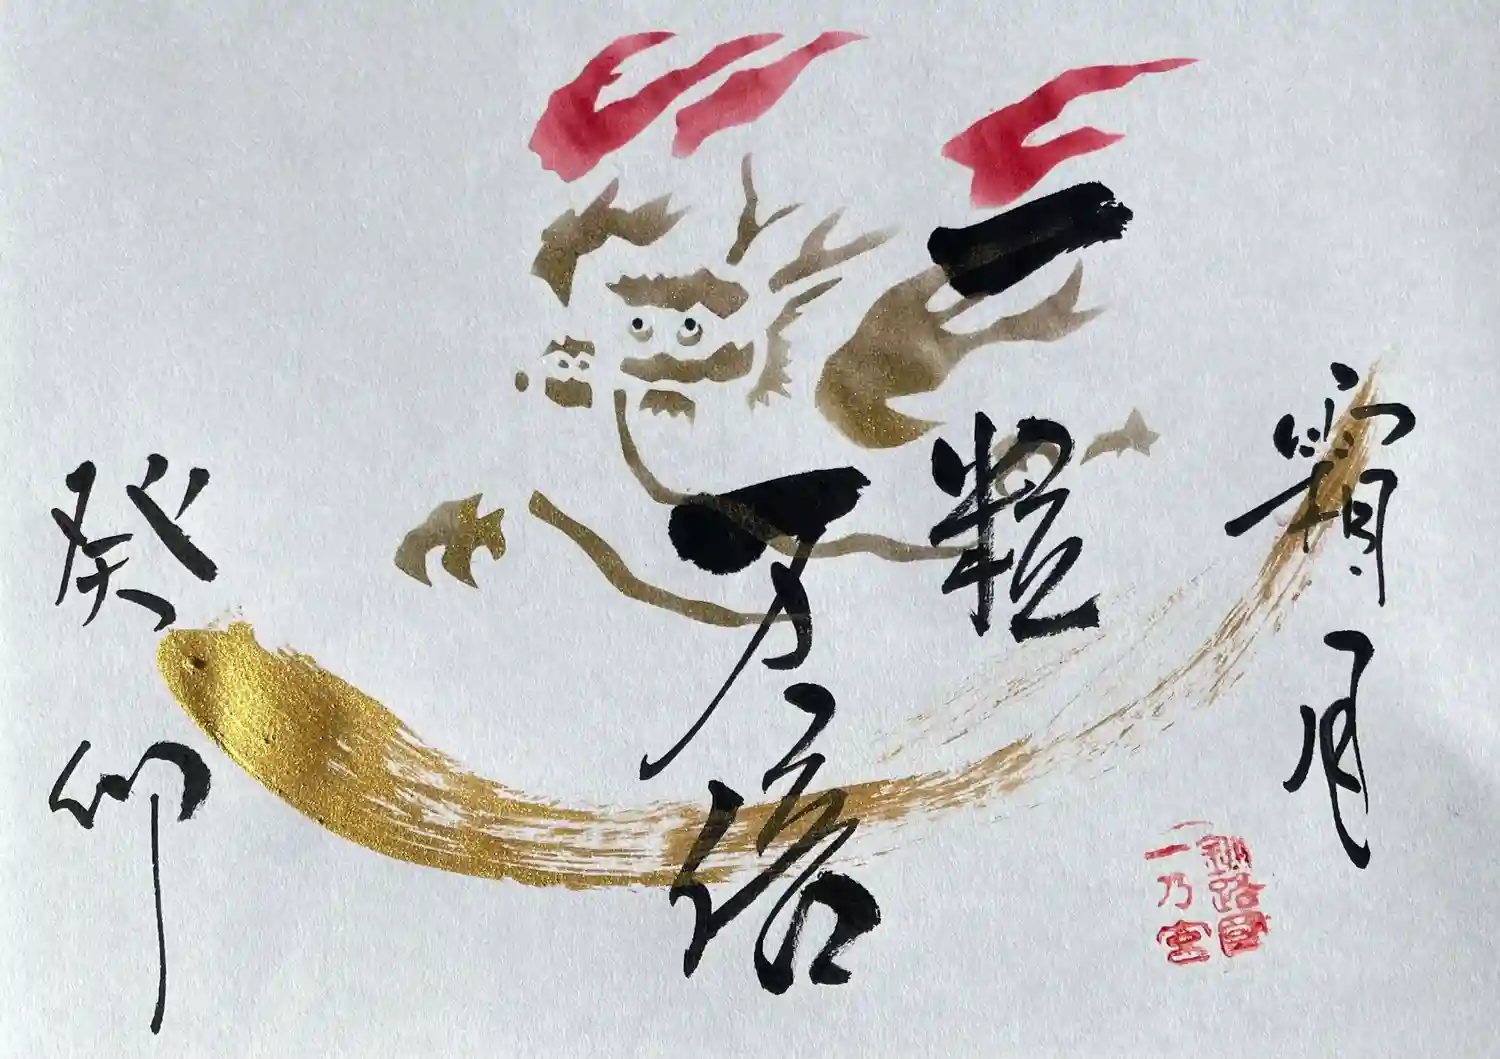 霜月
一粒
万倍
癸卯
釧路國
一乃宮